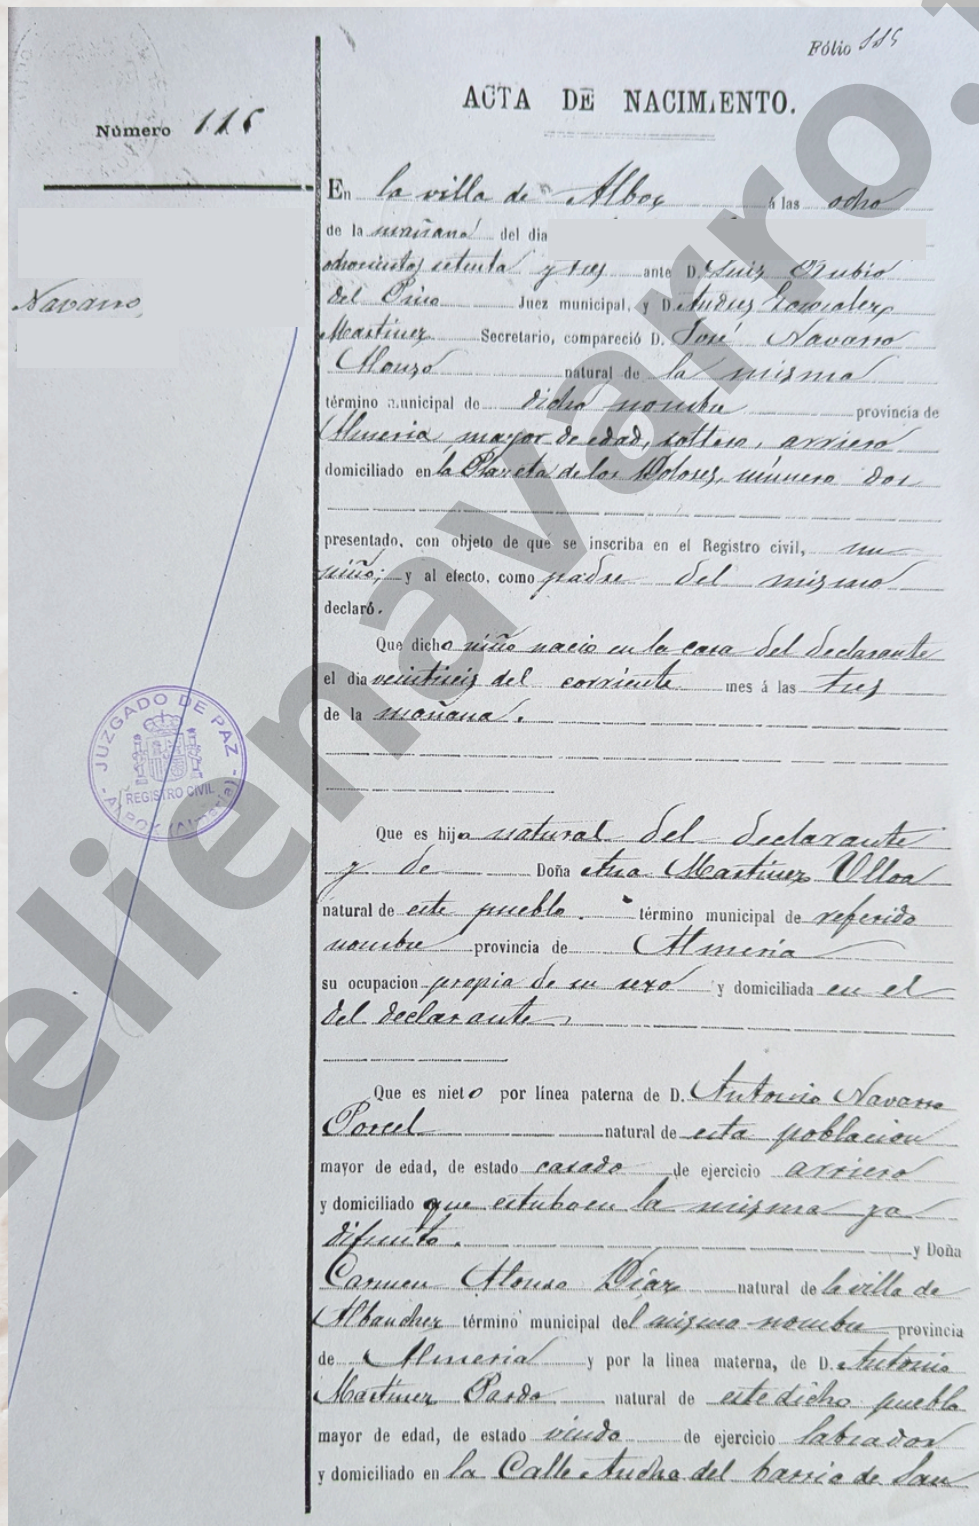 Fólio 115
ACTA DE NACIMIENTO.
Número 116
Navarro
En la villa de Albox á las ocho
de la mañana del dia
ochocientos setenta y tres ante D. Luis Rubio
del Pino Juez municipal, y D. Andres Gonzalez
Martinez Secretario, compareció D. José Navarro
Alonso natural de la misma
término municipal de dicho nombre provincia de
Almeria mayor de edad, soltero, arriero
domiciliado en la Plazeta de los Dolores, número dos
presentado, con objeto de que se inscriba en el Registro civil, un
niño; y al efecto, como padre del mismo
declaró.
Que dicho niño nacio en la casa del declarante
el dia veintiseis del corriente mes á las tres
de la mañana.
JUZGADO DE PAZ
REGISTRO CIVIL
- ALBOX (Almería) -
Que es hijo natural del declarante
y de Doña Ana Martinez Ulloa
natural de este pueblo. término municipal de referido
nombre provincia de Almeria
su ocupacion propia de su sexo y domiciliada en el
del declarante
Que es nieto por línea paterna de D. Antonio Navarro
Porcel natural de esta poblacion
mayor de edad, de estado casado de ejercicio arriero
y domiciliado que estubo en la misma ya
difunto. y Doña
Carmen Alonso Diaz natural de la villa de
Albanchez término municipal del mismo nombre provincia
de Almeria y por la linea materna, de D. Antonio
Martinez Pardo natural de este dicho pueblo
mayor de edad, de estado viudo de ejercicio labrador
y domiciliado en la Calle Ancha del barrio de San
celienavarro.